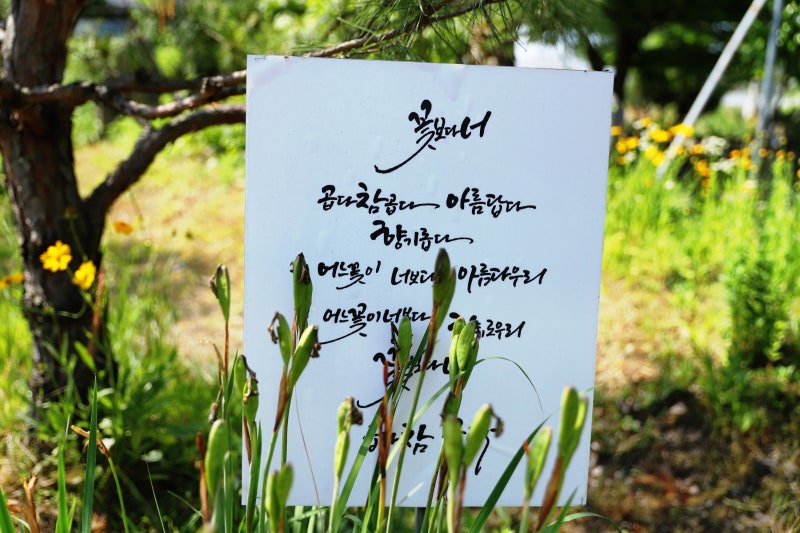 꽃보다 너
곱다 참 곱다 아름답다
향기롭다
어느 꽃이 너보다 아름다우리
어느 꽃이 너보다
꽃보다 너
참